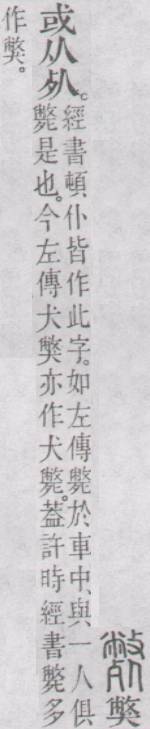 斃獘
或从死。經書頓仆皆作此字。如左傳斃於車中、與一人俱
斃是也。今左傳犬獘亦作犬斃。蓋許時經書斃多
作獘。